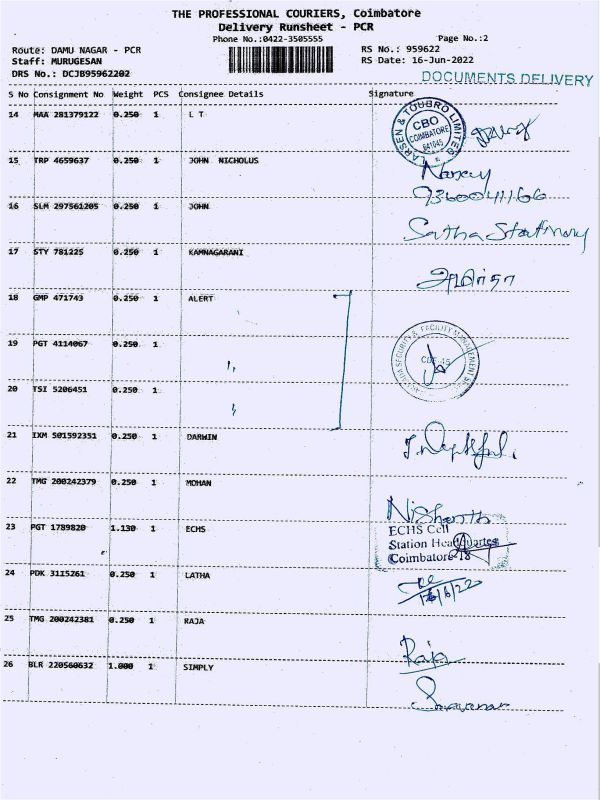 THE PROFESSIONAL COURIERS, Coimbatore
Delivery Runsheet - PCR
Phone No.:0422-3505555
Page No.:2
Route: DAMU NAGAR - PCR
RS No.: 959622
Staff: MURUGESAN
RS Date: 16-Jun-2022
DRS No.: DCJB95962202
DOCUMENTS DELIVERY
S No Consignment No Weight PCS Consignee Details Signature
14 MAA 281379122 0.250 1 L T
LARSEN & TOUBRO LIMITED
CBO
COIMBATORE
641045
15 TRP 4659637 0.250 1 JOHN NICHOLUS
9360041166
16 SLM 297561205 0.250 1 JOHN
Satha Stationary
17 STY 781225 0.250 1 KAMNAGARANI
18 GMP 471743 0.250 1 ALERT
SECURITY & FACILITY MANAGEMENT
19 PGT 4114067 0.250 1 "
20 TSI 5206451 0.250 1 "
21 IXM 501592351 0.250 1 DARWIN
22 TMG 200242379 0.250 1 MOHAN
Nishanth
23 PGT 1789820 1.130 1 ECHS
ECHS Cell
Station Headquarter
Coimbatore-18
24 PDK 3115261 0.250 1 LATHA
16/6/22
25 TMG 200242381 0.250 1 RAJA
Raja
26 BLR 220560632 1.000 1 SIMPLY